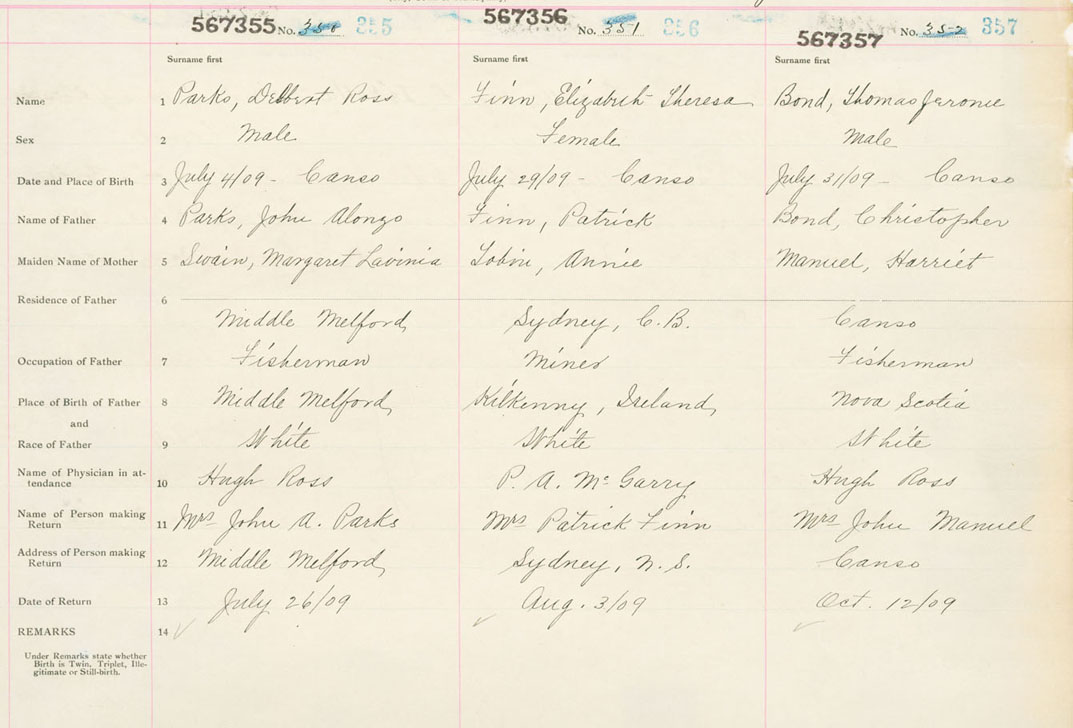 567355 No. 350 355 567356 No. 351 356 567357 No. 352 357
Surname first Surname first Surname first
Name 1 Parks, Delbert Ross Finn, Elizabeth Theresa Bond, Thomas Jerome
Sex 2 Male Female Male
Date and Place of Birth 3 July 4/09 - Canso July 29/09 - Canso July 31/09 - Canso
Name of Father 4 Parks, John Alongo Finn, Patrick Bond, Christopher
Maiden Name of Mother 5 Swain, Margaret Lavinia Tobin, Annie Manuel, Harriet
Residence of Father 6
Middle Melford Sydney, C.B. Canso
Occupation of Father 7 Fisherman Miner Fisherman
Place of Birth of Father 8 Middle Melford Kilkenny, Ireland Nova Scotia
and
Race of Father 9 White White White
Name of Physician in at-
tendance 10 Hugh Ross P. A. McGarry Hugh Ross
Name of Person making
Return 11 Mrs John A. Parks Mrs Patrick Finn Mrs John Manuel
Address of Person making
Return 12 Middle Melford Sydney, N.S. Canso
Date of Return 13 July 26/09 Aug. 3/09 Oct. 12/09
REMARKS 14
Under Remarks state whether
Birth is Twin, Triplet, Ille-
gitimate or Still-birth.